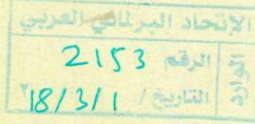 الإتحاد البرلماني العربي
الوارد
الرقم 2153
التاريخ / 18/3/1 ٢